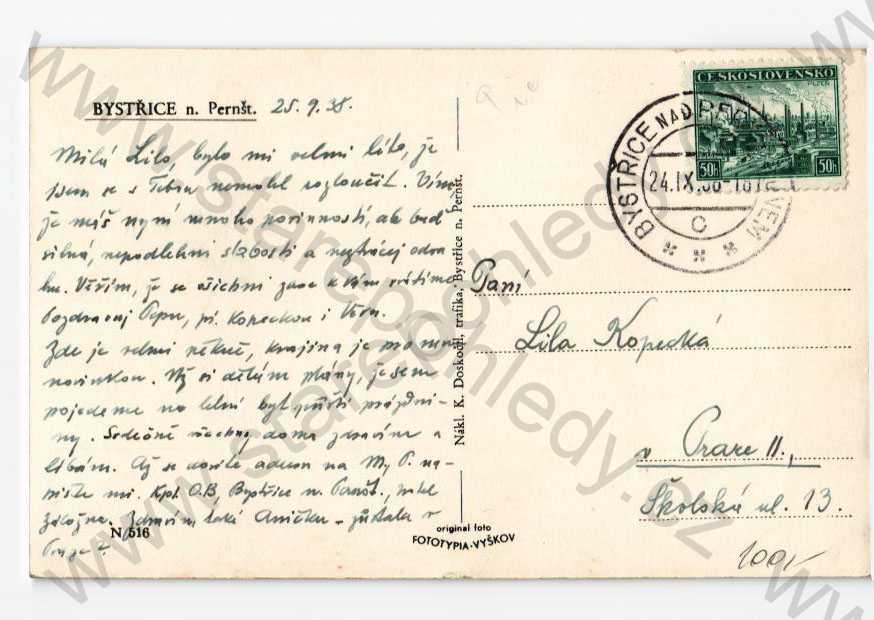 BYSTŘICE n. Pernšt. 25.9.38.
Milá Lilo, bylo mi velmi líto, že
jsem se s Tebou nemohl rozloučit. Vím,
že máš nyní mnoho povinností, ale buď
silná, nepodlehni slabosti a neztrácej odva-
hu. Věřím, že se všichni zase k Vám vrátíme
Pozdravuj Pepu, pí. Kopeckou i Věru.
Zde je velmi pěkně, krajina je pro mne
novinkou. Už si dělám plány, že sem
pojedeme na letní byt příští prázdni-
ny. Srdečně všechny doma zdravím a
líbám. Až se dovíš adresu na
mi. Kpt. O.B, Bystřice n. Pernšt., hotel
Záložna. Zdravím také Aničku - zůstala v
Praze?
N/516
Nákl. K. Doskočil, trafika, Bystřice n. Pernšt.
original foto
FOTOTYPIA-VYŠKOV
ČESKOSLOVENSKO
PLZEŇ
50h 50h
BYSTŘICE NAD
24.IX.38
C
Paní
Lila Kopecká
v Praze II.,
Školská ul. 13.
100,-
www.starepohledy.cz
www.starepohledy.cz